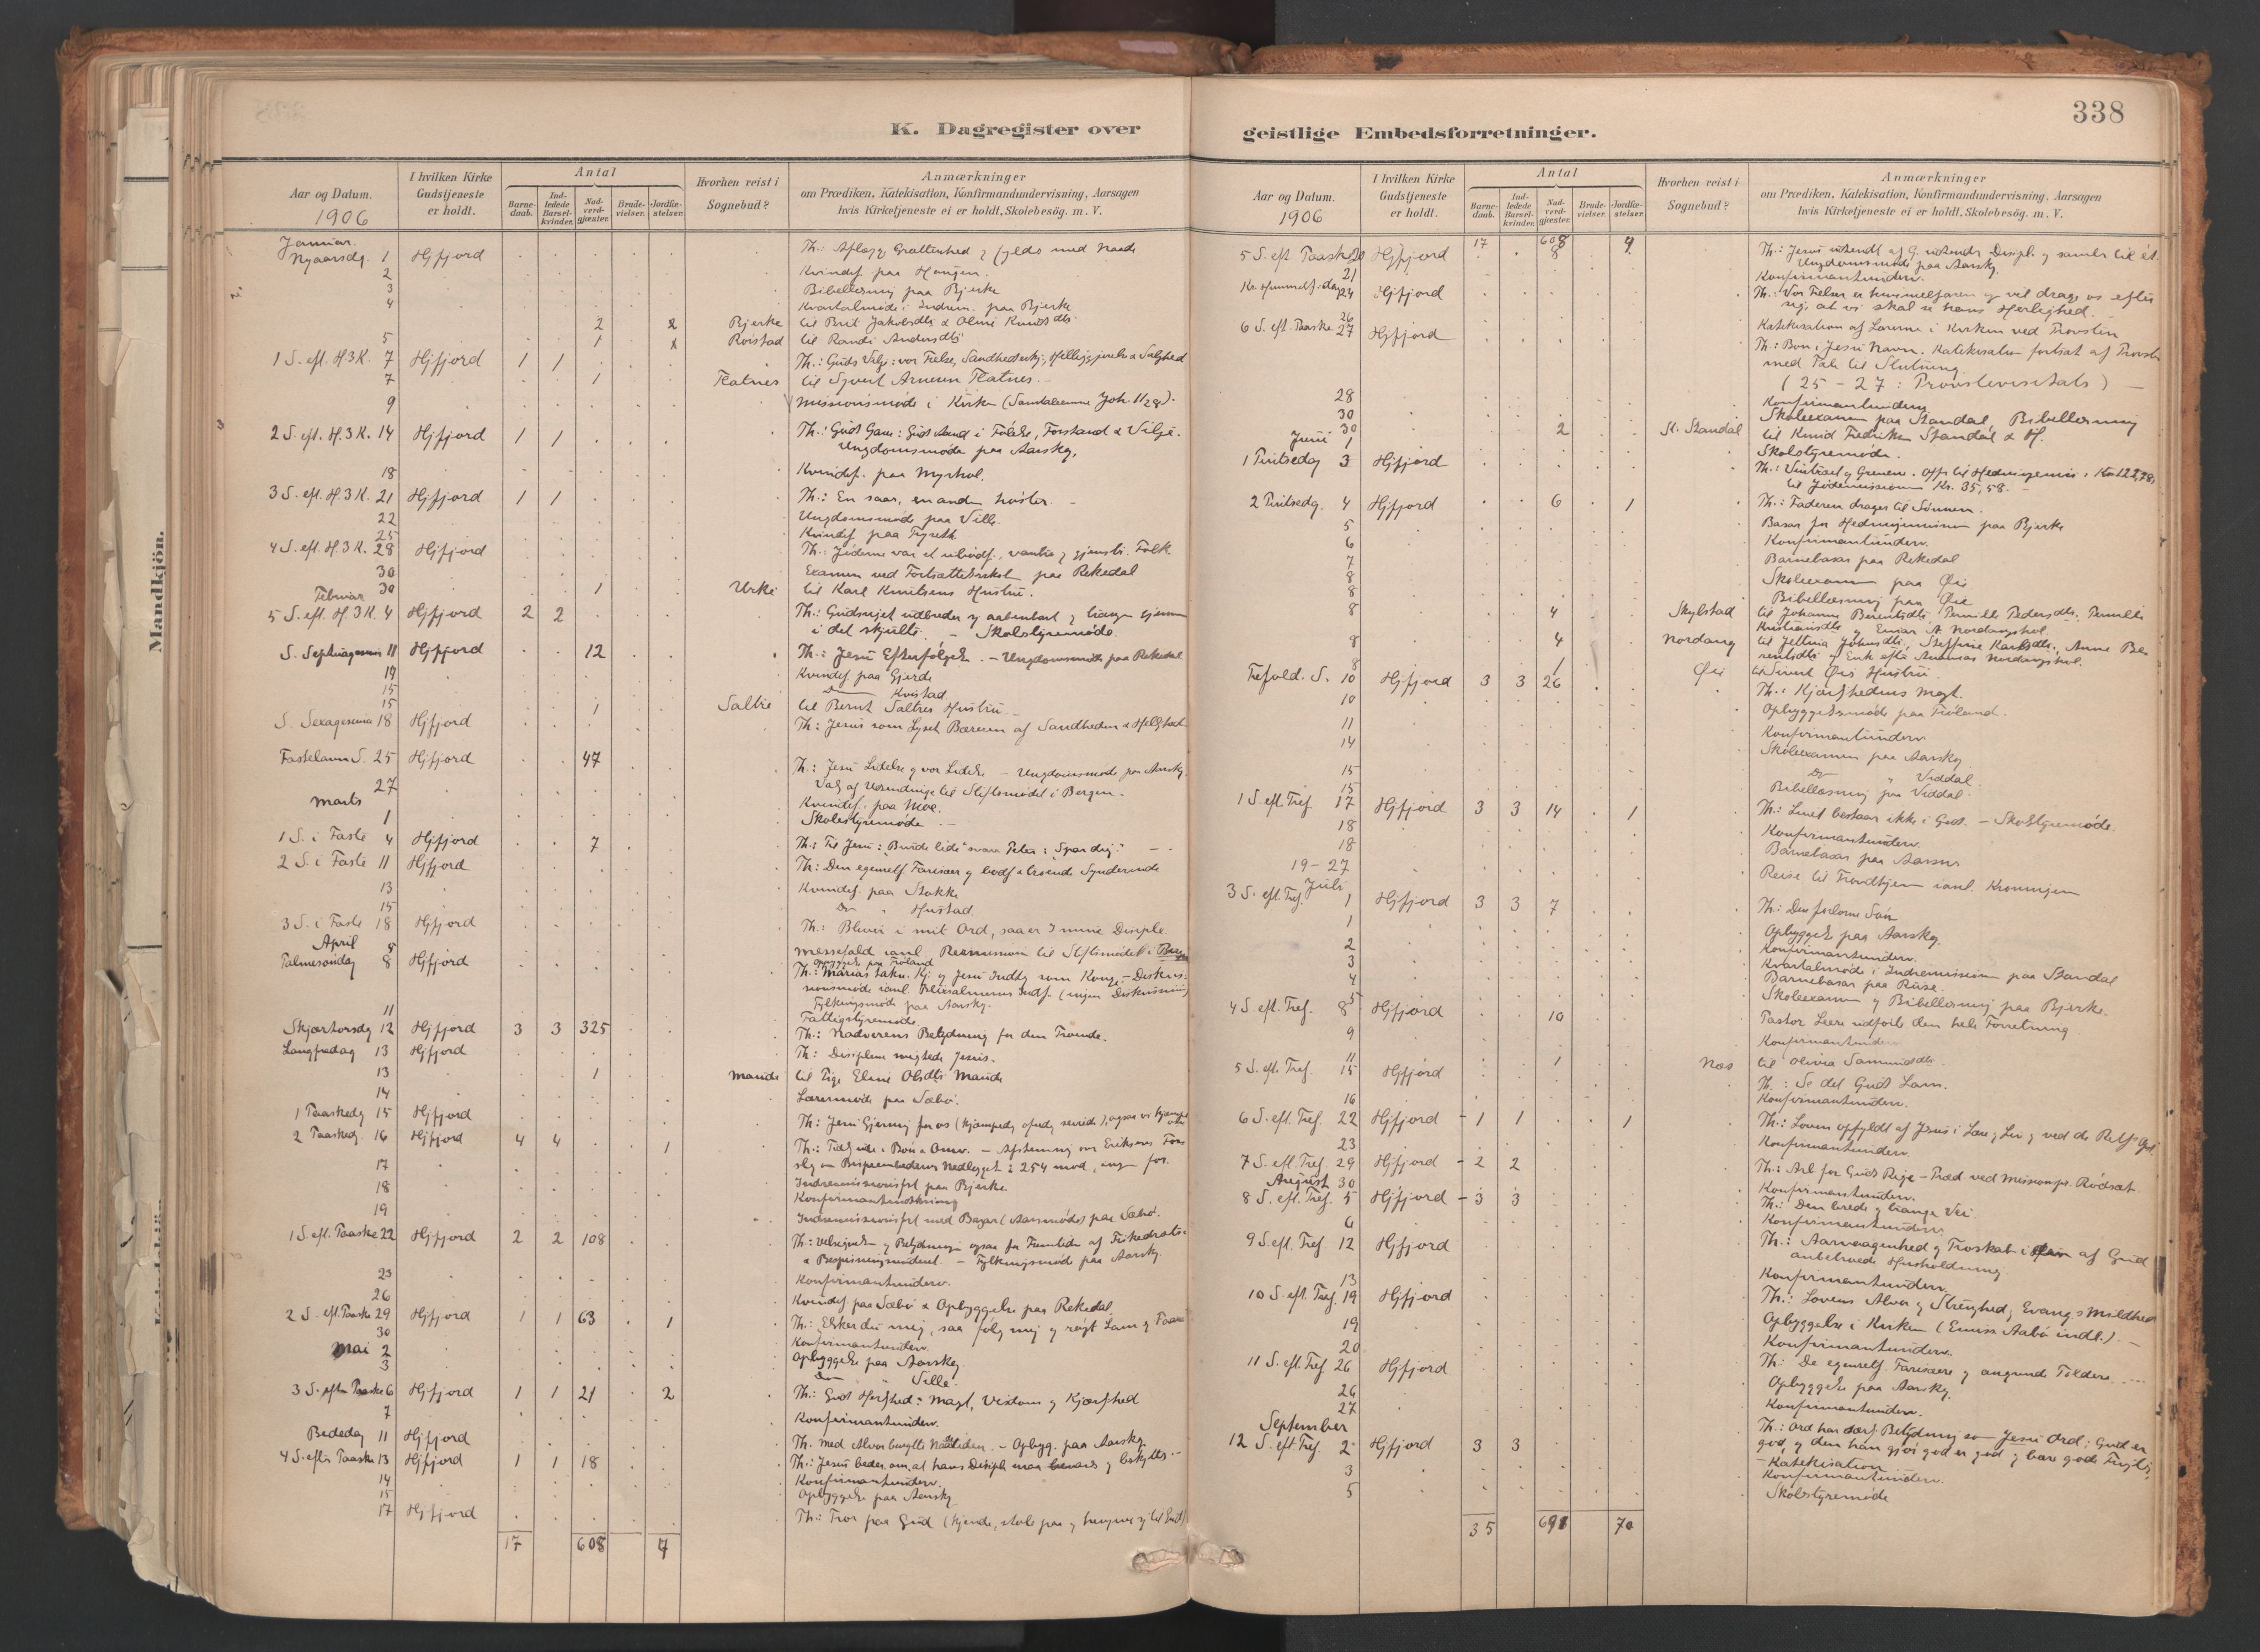 338
K. Dagregister over geistlige Embedsforretninger.
Mandkjön.
Aar og Datum.
1906
I hvilken Kirke Gudstjeneste er holdt.
Antal
Barne-daab.
Ind-ledede Barsel-kvinder.
Nad-verd-gjæster.
Brude-vielser.
Jordfæ-stelser.
Hvorhen reist i Sognebud?
Anmærkninger
om Prædiken, Katekisation, Konfirmandundervisning, Aarsagen
hvis Kirketjeneste ei er holdt, Skolebesög. m. V.
Januar
Nyaarsdg. 1 Hjfjord Th.: med Naade
2 Kvindef. paa
3 Bibellæsning paa Bjerke
4 Kvartalmøde i Indrem. paa Bjerke
2 2 Bjerke til Brit Jakobsdtr & Oline Knutsdtr
5 1 1 Rvistad til Randi Andersdtr
1 S. eft. H.3K. 7 Hjfjord 1 1 Th.: Guds Vilje: vor Frelse,
7 1 Flatnes til Sjvert Arnesen Flatnes.
9 Missionsmøde i Kirken
2 S. eft. H.3K. 14 Hjfjord 1 1 Th.: Guds Gave: Guds Aand i Følelse, Forstand & Vilje.
Ungdomsmøde paa Aarskog,
18 Kvindef. paa Myrhol.
3 S. eft. H.3K. 21 Hjfjord 1 1 Th.: En saar, en anden høster.
22 Ungdomsmøde paa Ville.
25 Kvindef. paa
4 S. eft. H.3K. 28 Hjfjord Th.: Jøderne var et Folk
30 Examen ved Fortsættelsesskol. paa Rekedal
30 1 Urke til Karl Knutsens Hustru.
Februar
5 S. eft. H.3K. 4 Hjfjord 2 2 Th.: Gudsriget
i det skjulte. - Skolestyremøde.
S. Septuagesima 11 Hjfjord 12 Th.: Jesu Efterfølgelse. - Ungdomsmøde paa Rekedal
14 Kvindef. paa Gjerde
15 Do Kvistad
15 1 Saltre til Bernt Saltres Hustru
S. Sexagesima 18 Hjfjord Th.: Jesus som Lyset Bæreren af Sandheden & Hellighed
Fastelavn S. 25 Hjfjord 47 Th.: Jesu Lidelse og vor Lidelse - Ungdomsmøde paa Aarskog.
27 Valg af Udsendinge til Stiftsmødet i Bergen.
Marts
Kvindef. paa Moe.
1 Skolestyremøde.
1 S. i Faste 4 Hjfjord 7 Th.: Til Jesu: "Burde lide" svarer Peter: "Spar dig."
2 S. i Faste 11 Hjfjord Th.: Den egenretf. Farisæer og Synderinde
13 Kvindef. paa Stokke
15 Do " Hustad.
3 S. i Faste 18 Hjfjord Th.: Bliver i mit Ord, saa er I mine Disciple.
April
8 Messefald Stiftsmødet i Bergen
Palmesøndag 8 Hjfjord Th.: Marias og Jesu Indtog som Konge. - Diskus-
sionsmøde (ingen Diskussion)
Fylkingsmøde paa Aarskog.
11 Fattigstyremøde
Skjærtorsdg 12 Hjfjord 3 3 325 Th.: Nadverens Betydning for den Troende.
Langfredag 13 Hjfjord Th.: Disciplene svigtede Jesus.
13 1 Maude til Pige Eline Olsdtr. Maude
14 Lærermøde paa Sæbø.
1 Paaskedg 15 Hjfjord Th.: Jesu Gjerning for os
2 Paaskedg. 16 Hjfjord 4 4 1 Th.: i Bøn & - Afstemning om Eriksens Fors
254 mod, ingen for.
17 Indremissionsfst paa Bjerke
18 Konfirmantindskrivning
19 Indremissionsfst med Bazar (Aarsmøde) paa Sæbø.
1 S. eft. Paaske 22 Hjfjord 2 2 108 Th.: og Betydningen ogsaa for Fremtiden af
& Bespisningsunderet. - Fylkingsmøde paa Aarskog
23 Konfirmantunderv.
26 Kvindef. paa Sæbø & Opbyggelse paa Rekedal
2 S. eft. Paaske 29 Hjfjord 1 1 63 1 Th.: Elsker du mig, saa følg mig og røgt Lam og Faar
30 Konfirmantunderv.
Mai 2 Opbyggelse paa Aarskog.
3 Do " Ville.
3 S. eft. Paaske 6 Hjfjord 1 1 21 2 Th.: Guds Herlighed: Magt, Visdom og Kjærlighed
7 Konfirmantunderv.
Bededag 11 Hjfjord Th. Med Alvor benytte Naadetiden. - Opbyg. paa Aarskog.
4 S. efter Paaske 13 Hjfjord 1 1 18 Th.: Jesus beder om, at hans Disciple maa bevares og beskyttes.
14 Konfirmantunderv.
15 Opbyggelse paa Aarskog
17 Hjfjord Th.: Tror paa Gud
17 608 9
Aar og Datum.
1906
I hvilken Kirke Gudstjeneste er holdt.
Antal
Barne-daab.
Ind-ledede Barsel-kvinder.
Nad-verd-gjæster.
Brude-vielser.
Jordfæ-stelser.
Hvorhen reist i Sognebud?
Anmærkninger
om Prædiken, Katekisation, Konfirmandundervisning, Aarsagen
hvis Kirketjeneste ei er holdt, Skolebesög. m. V.
17 608 9
5 S. eft Paaske 20 Hjfjord 8 Th.: Jesus udsendt af G. udsender Discipl. og samler til ét.
Ungdomsmøde paa Aarskog.
21 Konfirmantunderv.
Kr. Himmelf. dag 24 Hjfjord Th.: Vor Frelser er himmelfaren og vil drage os efter
sig, at vi skal se hans Herlighed.
26 Katekisation af Lærerne i Kirken ved Provsten
6 S. eft. Paaske 27 Hjfjord Th.: Bøn i Jesu Navn. Katekisation fortsat af Provsten
med Tale til Slutning.
(25 - 27: Provstevisitats)
28 Konfirmantunderv.
30 Skoleexamen paa Standal, Bibellæsning
30 2 St. Standal til Knud Fredriksen Standal & H.
Juni 1 Skolestyremøde.
1 Pintsedag 3 Hjfjord Th.: Vintræet og Grenene. Offer til Hedningemis. Kr. 122,78,
til Jødemissionen Kr. 35,58.
2 Pintsedg. 4 Hjfjord 6 1 Th.: Faderen drager til Sønnen.
5 Basar for Hedningemission paa Bjerke
6 Konfirmantunderv.
7 Barnebasar paa Rekedal
8 Skoleexamen paa Øie
8 Bibellæsning paa Øie
8 4 Skylstad til Johanne Berentsdtr. Pernille Pedersdtr. Pernille
Kristiansdtr og Einar A. Nordangshol.
8 4 Nordang til Jellina Johnsdtr., Steffine Karlsdtr., Anne Be-
rentsdtr og Enk. efter Ananias Nordangshol.
8 1 Øie til Sivert Øies Hustru.
Trefold. S. 10 Hjfjord 3 3 26 Th.: Kjærlighedens Magt.
10 Opbyggelsesmøde paa Frøland.
11 Konfirmantunderv.
14 Skoleexamen paa Aarskog
15 Do " Viddal
15 Bibellæsning paa Viddal.
1 S. eft. Tref. 17 Hjfjord 3 3 14 1 Th.: Livet bestaar ikke i Gods. - Skolestyremøde.
18 Konfirmantunderv.
18 Barnebasar paa Aarsnes
19-27 Reise til Trondhjem i anl. Kroningen
Juli
3 S. eft. Tref. 1 Hjfjord 3 3 7 Th.: Den forlorne Søn
1 Opbyggelse paa Aarskog.
2 Konfirmantunderv.
3 Kvartalmøde i Indremissionen paa Standal
4 Barnebasar paa Rise.
5 Skoleexamen og Bibellæsning paa Bjerke.
4 S. eft. Tref. 8 Hjfjord 10 Pastor Leere udførte den hele Forretning
9 Konfirmantunderv.
11 1 Næs til Olivia Samuelsdtr.
5 S. eft. Tref. 15 Hjfjord Th.: Se det Guds Lam.
16 Konfirmantunderv.
6 S. eft. Tref. 22 Hjfjord - 1 1 1 Th.: Loven opfyldt af Jesus i Lære og Liv og ved de
23 Konfirmantunderv.
7 S. eft. Tref. 29 Hjfjord - 2 2 Th.: Arb. for Guds Rige - Præd. ved Missionspr. Rødsæt
August 30 Konfirmantunderv.
8 S. eft. Tref. 5 Hjfjord - 3 3 Th.: Den brede og trange Vei
6 Konfirmantunderv.
9 S. eft. Tref. 12 Hjfjord Th.: Aarvaagenhed og Troskab i af Gud
anbetroede Husholdning
13 Konfirmantunderv.
10 S. eft. Tref. 19 Hjfjord Th.: Lovens Alvor og Strenghed, Evang.s Mildhed
19 Opbyggelse i Kirken (Emiss. Aabø indl.).
20 Konfirmantunderv.
11 S. eft. Tref. 26 Hjfjord Th.: De egenretf. Farisæere og angrende Toldere
26 Opbyggelse paa Aarskog.
27 Konfirmantunderv.
September
12 S. eft. Tref. 2 Hjfjord 3 3 Th.: Ord har Betydning som Jesu Ord; Gud er
god, og den han gjør god er god og bærer gode Frugter,
- Katekisation
3 Konfirmantunderv.
5 Skolestyremøde
35 691 70